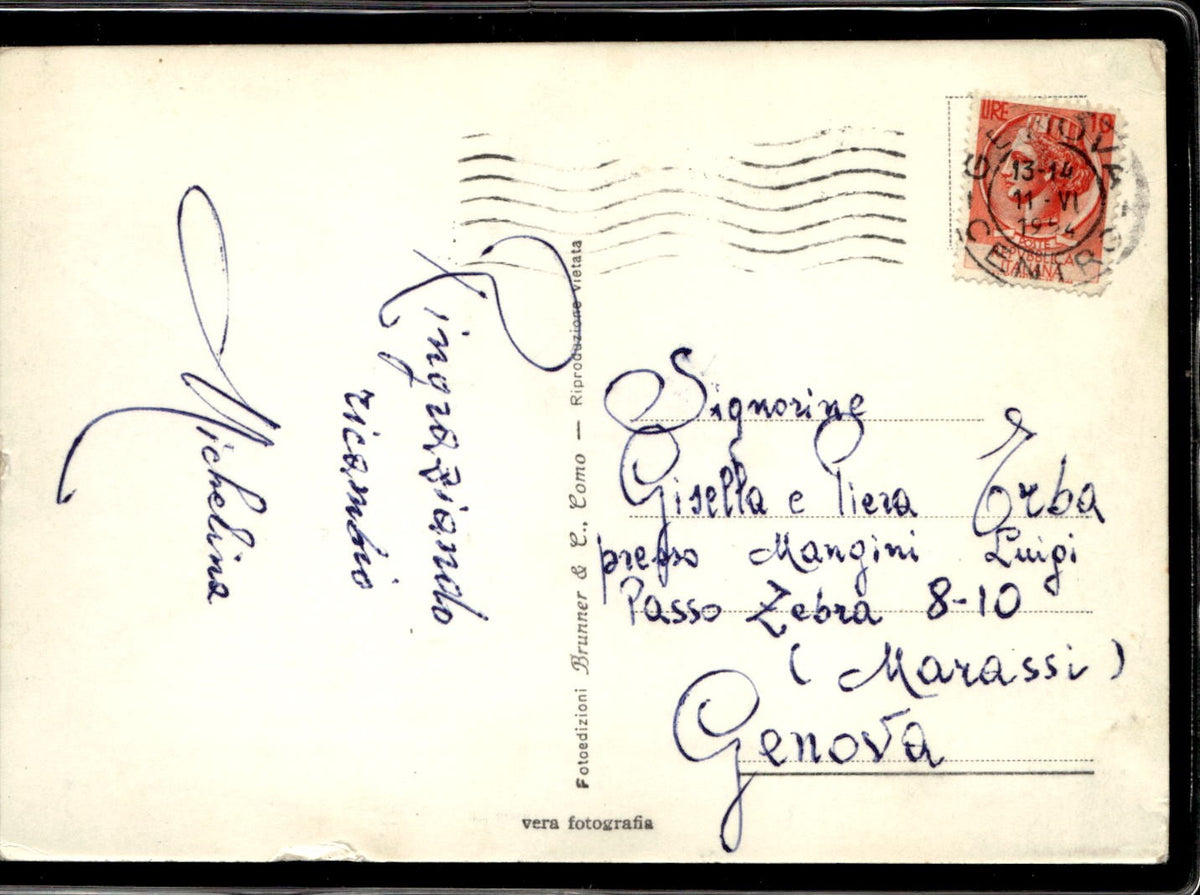 Ringraziando
ricambio
Michelina
Fotoedizioni Brunner & C., Como — Riproduzione vietata
vera fotografia
LIRE 10
POSTE
REPUBBLICA
ITALIANA
GENOVA
13-14
11-VI
1954
Signorine
Gisella e Piera Erba
presso Mangini Luigi
Passo Zebra 8-10
(Marassi)
Genova